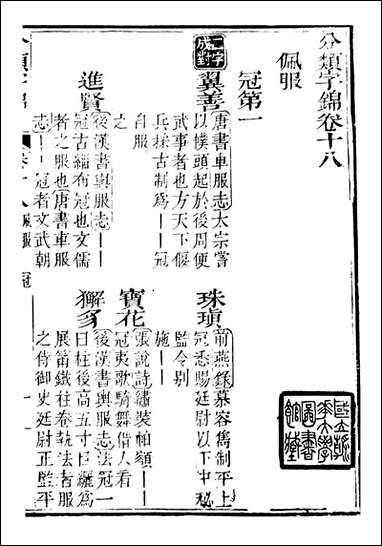 分類字錦卷十八
佩服
冠第一
二字成對
翼善
唐書車服志太宗嘗
以幞頭起於後周便
武事者也方天下偃
兵採古制爲——冠
自服
之
珠瑱
前燕錄慕容雋制平上
冠悉賜廷尉以下中秘
監令别
施——
進賢
後漢書輿服志——
冠古緇布冠也文儒
者之服也唐書車服
志——冠者文武朝
寶花
張說詩繡裝帕額——
冠夷歌騎舞借人看
獬豸
後漢書輿服志法冠一
曰柱後高五寸以纚爲
展筩鐵柱卷執法者服
之侍御史廷尉正監平
分類字錦
卷十八 佩服 冠
一
國立北平大學圖書館藏